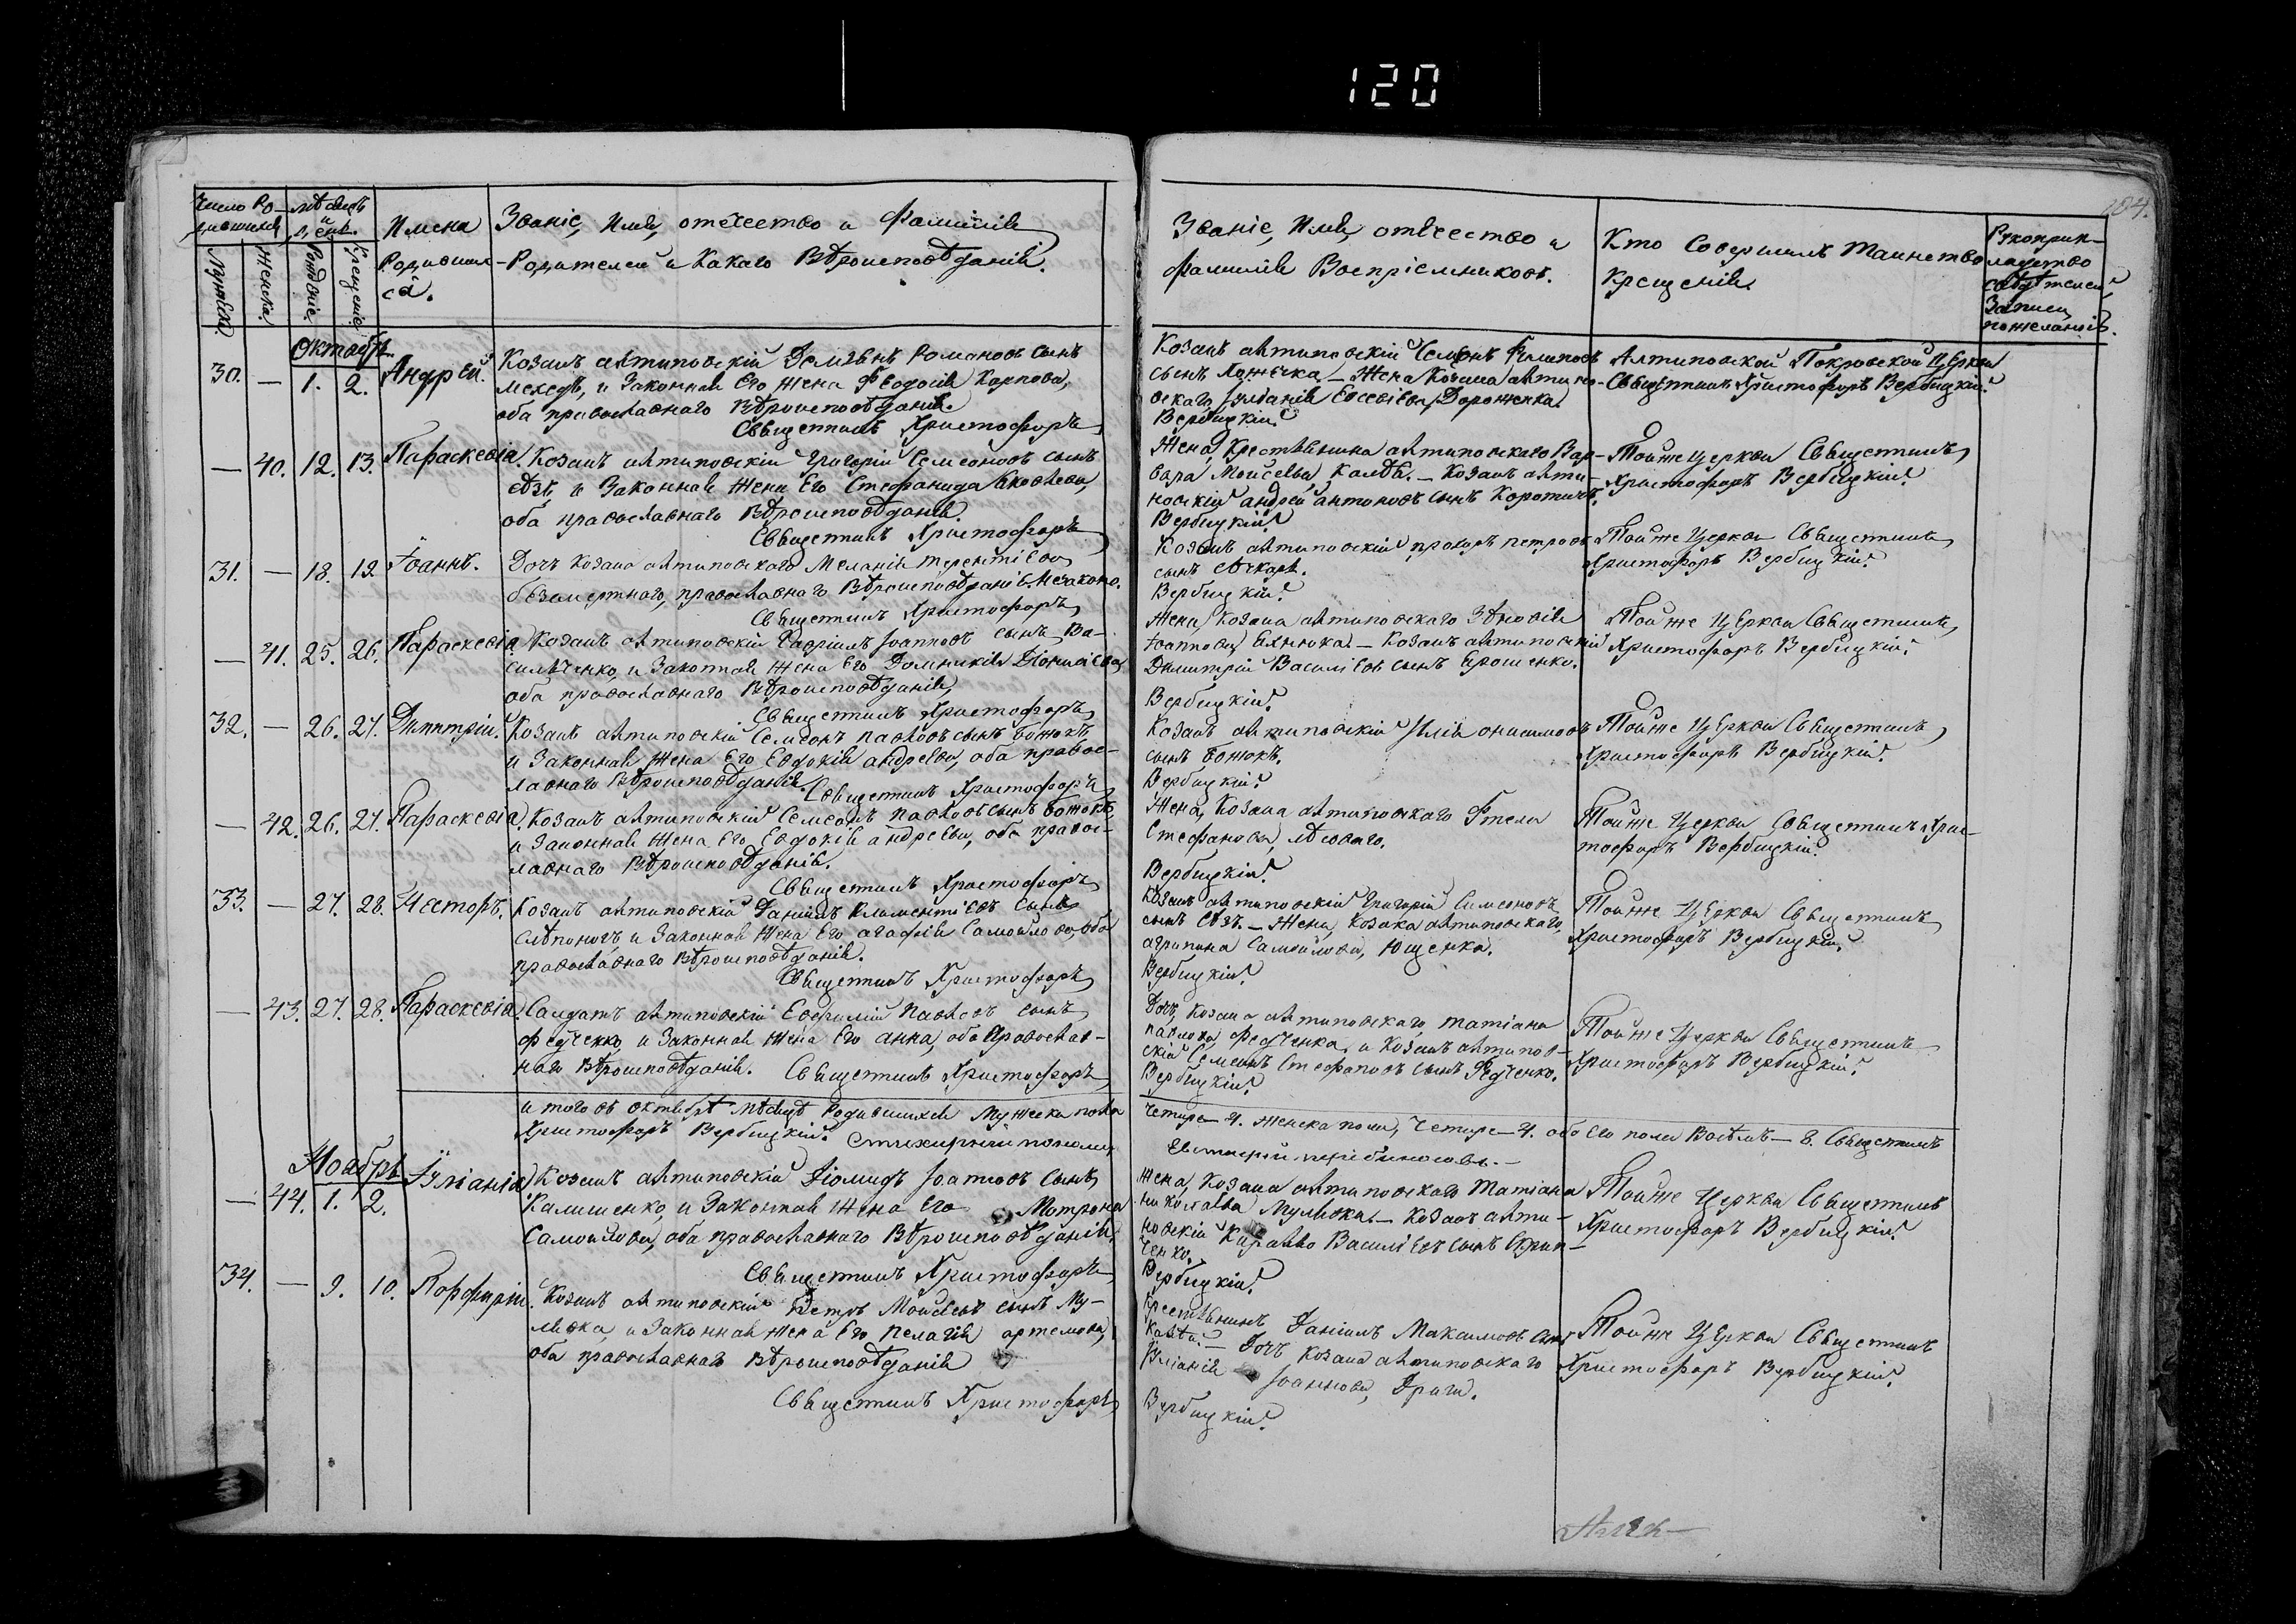 120
104.
Число Ро-
дившихся
Мѣсяцъ
и
день.
Имена
Родивших
ся.
Званіе, Имя, отечество и Фамилія
Родителей и Какаго Вѣроисповѣданія.
Мужска.
Женска.
Рожденіе.
Крещеніе.
Званіе, Имя, отечество и
фамилія Воспріемниковъ.
Кто Совершилъ Таинство
Крещенія.
Рукоприк-
ладство
свѣдѣтелей
Записи
пожеланію.
Октябрь
30. — 1. 2. Андрей.
Козакъ антиповскій Романовъ сынъ
и Законная Его Жена Феодосія Карпова,
оба православнаго Вѣроисповѣданія.
Священникъ Христофоръ
Козакъ антиповскій Семенъ Филиповъ
сынъ Жена Козака антипо-
вскаго Евсевіева, Дороженка.
Вербицкій
Антиповской Покровской Церкви
Священникъ Христофоръ Вербицкій.
— 40. 12. 13. Параскевія.
Козакъ антиповскій Григорій Семеоновъ сынъ
и Законная Жена Его Стефанида Яковлева,
оба православнаго Вѣроисповѣданія
Священникъ Христофоръ
Жена Крестьянина антиповскаго Вар-
вара Мойсеева, Козакъ анти-
повскій андрей антоновъ сынъ
Вербицкій
Тойже церкви Священникъ
Христофоръ Вербицкій
31. — 18. 19. Іоаннъ.
Дочъ Козака антиповскаго Меланія терентіева
православнаго Вѣроисповѣданія.
Священникъ Христофоръ
Козакъ антиповскій прохоръ петровъ
сынъ
Вербицкій
Тойже Церкви Священникъ
Христофоръ Вербицкій
— 41. 25. 26. Параскевія
Козакъ антиповскій Гавріилъ Іоанновъ сынъ Ва-
сильченко, и Законная Жена Его Домникія Діонисіева,
оба православнаго Вѣроисповѣданія,
Священникъ Христофоръ
Жена Козака антиповскаго
Іоаннова Козакъ антиповскій
Димитрій Василіевъ сынъ Ерошенко.
Вербицкій
Тойже Церкви Священникъ
Христофоръ Вербицкій
32. — 26. 27. Димитрій.
Козакъ антиповскій Семеонъ павловъ сынъ Божокъ,
и Законная Жена Его Евдокія андреева, оба правос-
лавнаго Вѣроисповѣданія. Священникъ Христофоръ
Козакъ антиповскій Илія онисимовъ
сынъ Божокъ.
Вербицкій
Тойже Церкви Священникъ
Христофоръ Вербицкій.
— 42. 26. 27. Параскевія.
Козакъ антиповскій Семеонъ павловъ сынъ Божокъ,
и Законная Жена Его Евдокія андреева, оба правос-
лавнаго Вѣроисповѣданія.
Священникъ Христофоръ
Жена Козака антиповскаго
Стефанова,
Вербицкій
Тойже Церкви Священникъ Хрис-
тофоръ Вербицкій
33. — 27. 28. Несторъ.
Козакъ антиповскій Даніилъ Климентіевъ Сынъ
и Законная Жена Его агафія Самойлова, оба
православнаго Вѣроисповѣданія.
Священникъ Христофоръ
Козакъ антиповскій Григорій Симеоновъ
сынъ Жена Козака антиповскаго,
агрипина Самойлова, Ющенка.
Вербицкій
Тойже Церкви Священникъ
Христофоръ Вербицкій
— 43. 27. 28. Параскевія
Салдатъ антиповскій Евфимій павловъ сынъ
федченко и Законная Жена Его анна, оба Православ-
наго Вѣроисповѣданія. Священникъ Христофоръ
Дочъ Козака антиповскаго, татіана
павлова, федченка, и Козакъ антипов-
скій Семеонъ Стефановъ сынъ Федченко.
Вербицкій
Тойже Церкви Священникъ
Христофоръ Вербицкій
итого въ октябрѣ мѣсяцѣ родившихся Мужеска пола
четыре — 4. женска пола, четыре — 4. обоего пола Восемъ — 8. Священникъ
Христофоръ Вербицкій.
Ноябрь
— 44. 1. 2. Іуліанія
Козакъ антиповскій Діомидъ Іоанновъ Сынъ
Калишенко, и Законная Жена Его Мотрона
Самойлова, оба православнаго Вѣроисповѣданія,
Священникъ Христофоръ
Жена Козака антиповскаго Татіана
николаева Мулявка. — Козакъ анти-
повскій Василіевъ сынъ Скрип-
ченко.
Вербицкій
Тойже Церкви Священникъ
Христофоръ Вербицкій
34. — 9. 10. Порфирій.
Козакъ антиповскій Петръ Мойсеевъ сынъ Му-
лявка, и Законная жена Его пелагія артемова,
оба православнаго Вѣроисповѣданія
Священникъ Христофоръ
Крестьянинъ Даніилъ Максимовъ Сынъ
Дочъ Козака антиповскаго
Іуліанія Іоаннова,
Вербицкій
Тойже Церкви Священникъ
Христофоръ Вербицкій